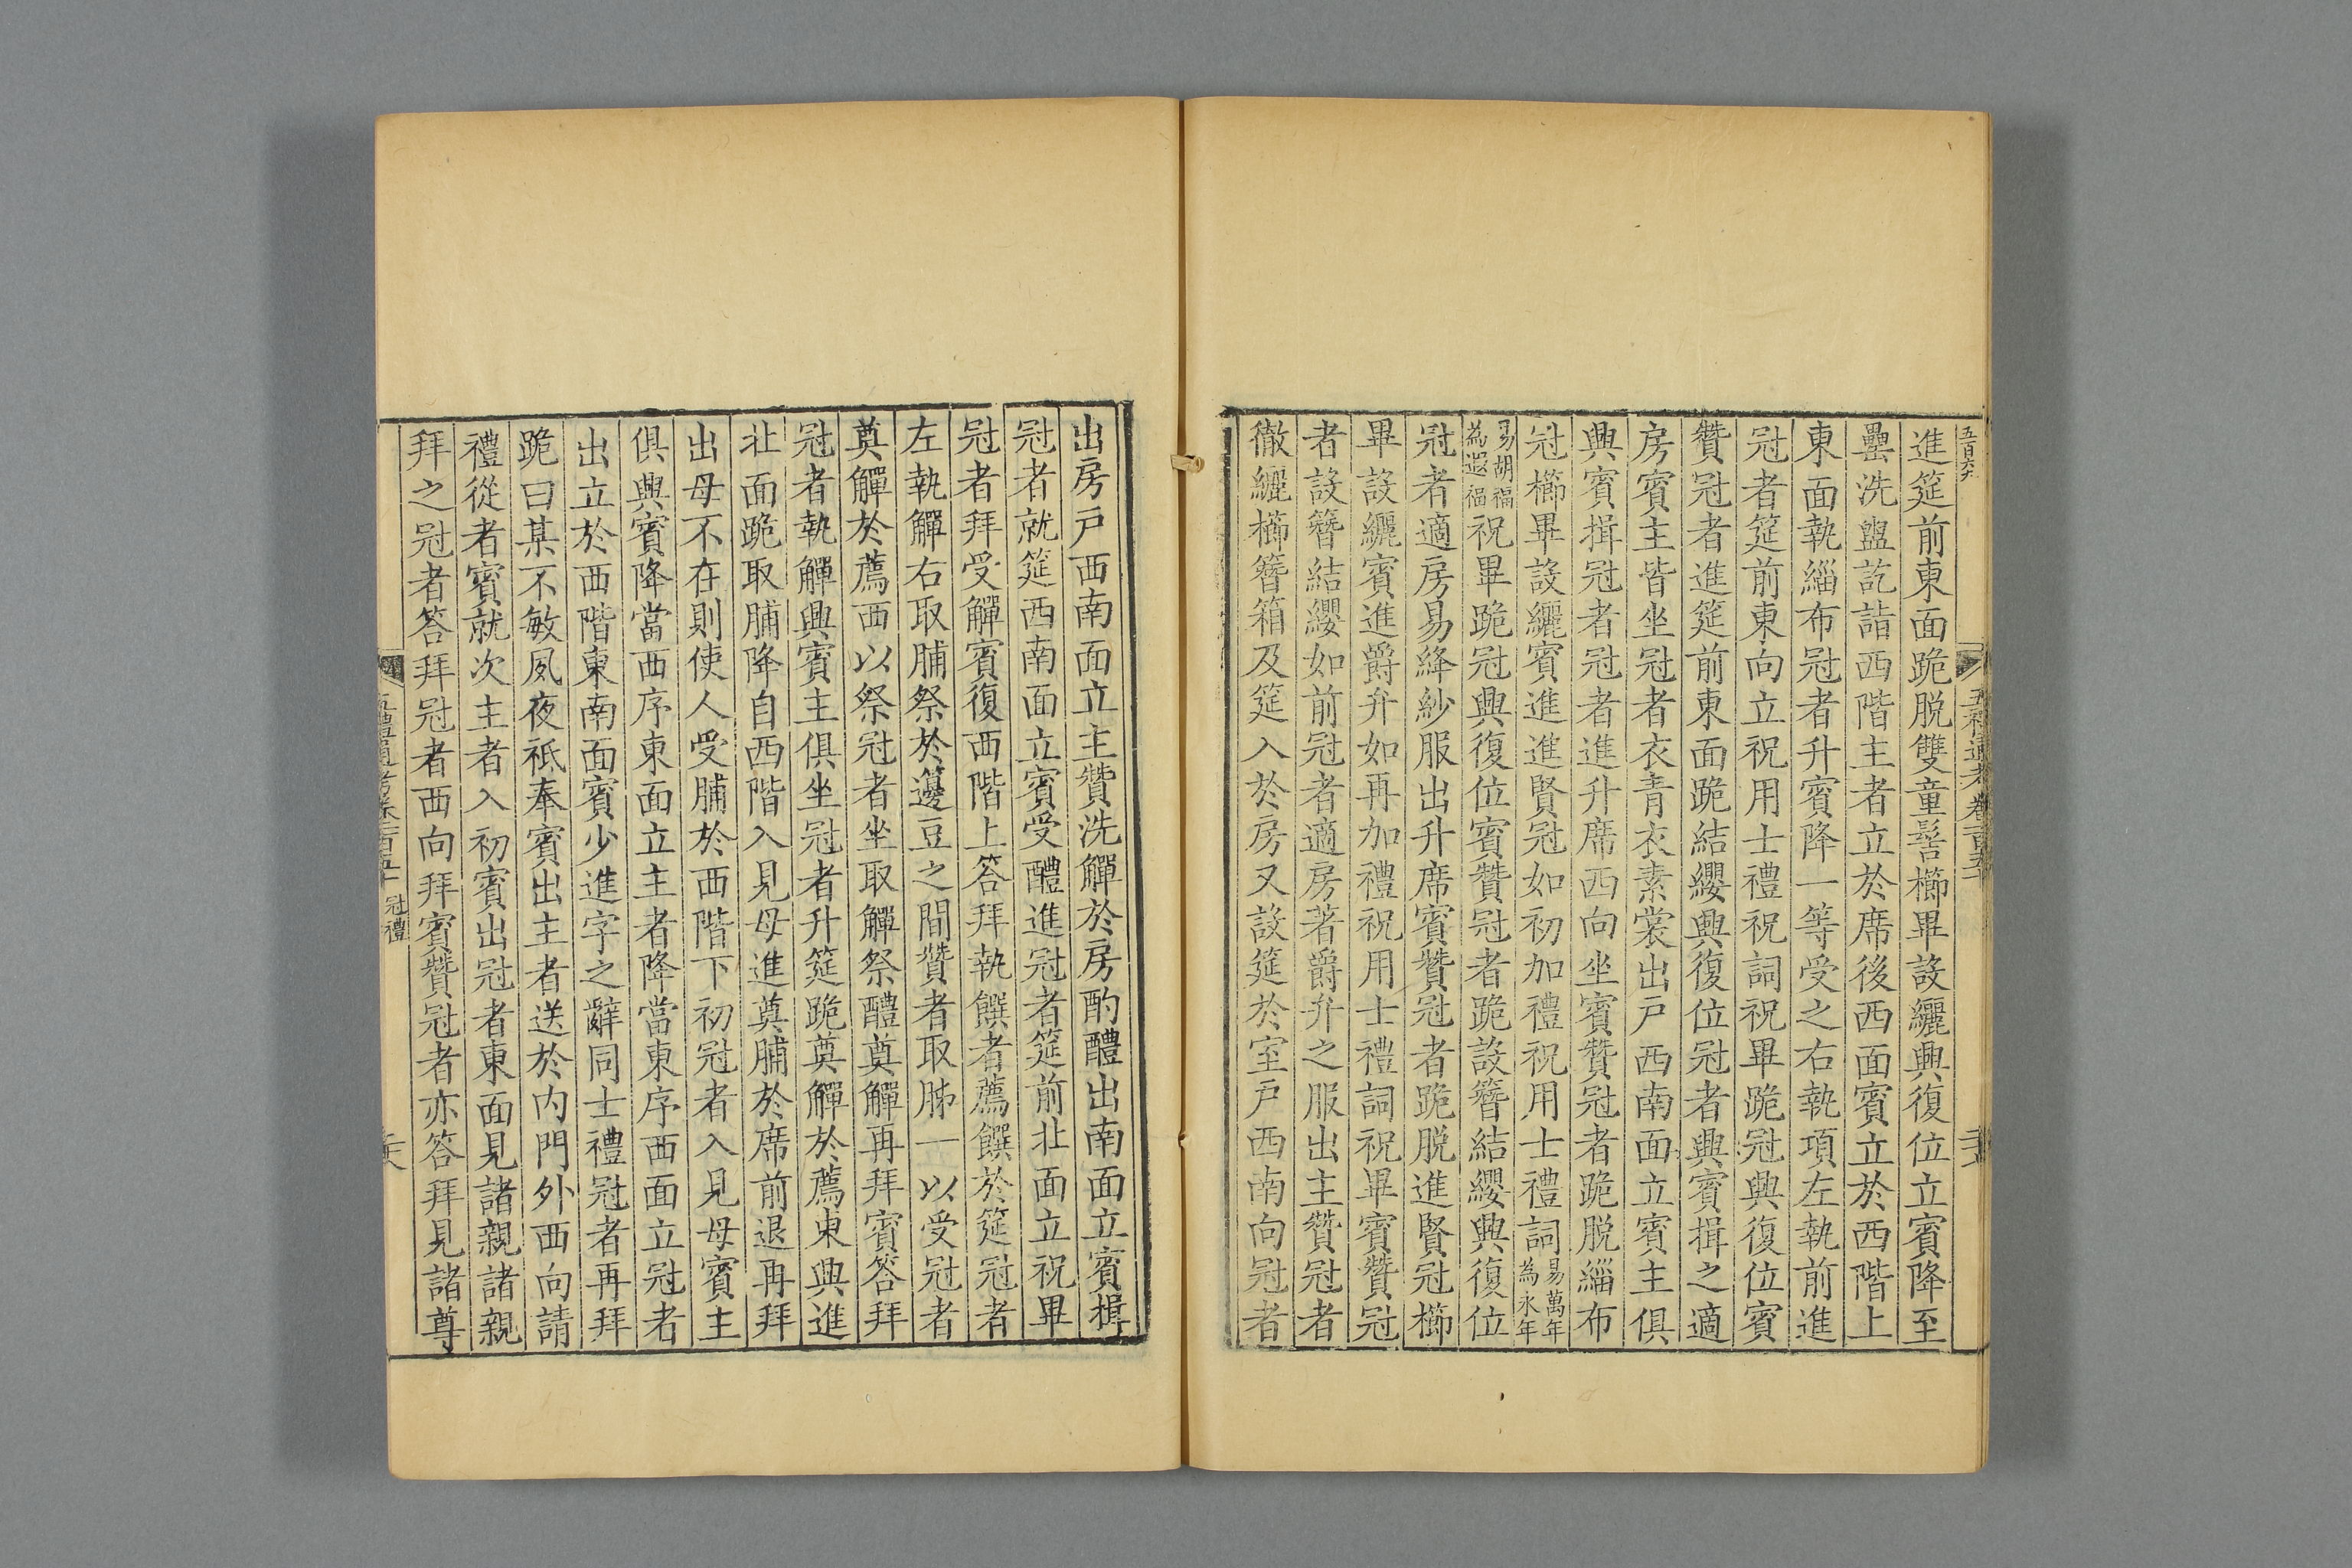 進筵前東面跪脱雙童髻櫛畢設纚興復位立賓降至
罍洗盥訖詣西階主者立於席後西面賓立於西階上
東面執緇布冠者升賓降一等受之右執項左執前進
冠者筵前東向立祝用士禮祝詞祝畢跪冠興復位賓
贊冠者進筵前東面跪結纓興復位冠者興賓揖之適
房賓主皆坐冠者衣青衣素裳出戸西南面立賓主俱
興賓揖冠者冠者進升席西向坐賓贊冠者跪脱緇布
冠櫛畢設纚賓進進賢冠如初加禮祝用士禮詞易萬年為永年
易胡福為遐福祝畢跪冠興復位賓贊冠者跪設簪結纓興復位
冠者適房易絳紗服出升席賓贊冠者跪脱進賢冠櫛
畢設纚賓進爵弁如再加禮祝用士禮詞祝畢賓贊冠
者設簪結纓如前冠者適房著爵弁之服出主贊冠者
徹纚櫛簪箱及筵入於房又設筵於室戸西南向冠者
出房戸西南面立主贊洗觶於房酌醴出南面立賓揖
冠者就筵西南面立賓受醴進冠者筵前北面立祝畢
冠者拜受觶賓復西階上答拜執饌者薦饌於筵冠者
左執觶右取脯祭於籩豆之間贊者取肺一以受冠者
奠觶於薦西以祭冠者坐取觶祭醴奠觶再拜賓答拜
冠者執觶興賓主俱坐冠者升筵跪奠觶於薦東興進
北面跪取脯降自西階入見母進奠脯於席前退再拜
出母不在則使人受脯於西階下初冠者入見母賓主
俱興賓降當西序東面立主者降當東序西面立冠者
出立於西階東南面賓少進字之辭同士禮冠者再拜
跪曰某不敏夙夜祗奉賓出主者送於内門外西向請
禮從者賓就次主者入初賓出冠者東面見諸親諸親
拜之冠者答拜冠者西向拜賓贊冠者亦答拜見諸尊
冠禮